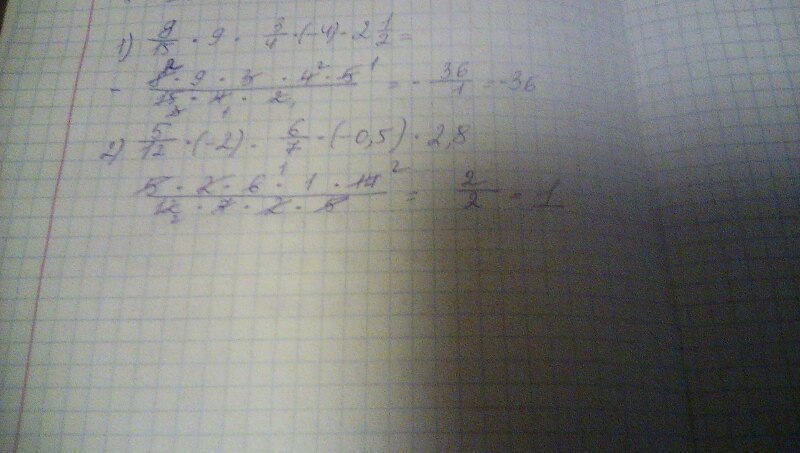 1) 8/15 · 9 · 3/4 · (-4) · 2 1/2 =
- 8 2 · 9 · 3 · 4 2 · 5 1 / 15 3 · 4 1 · 2 1 = - 36/1 = -36
2) 5/12 · (-2) · 6/7 · (-0,5) · 2,8
5 · 2 · 6 1 · 1 · 14 2 / 12 2 · 7 · 2 · 5 = 2/2 = 1